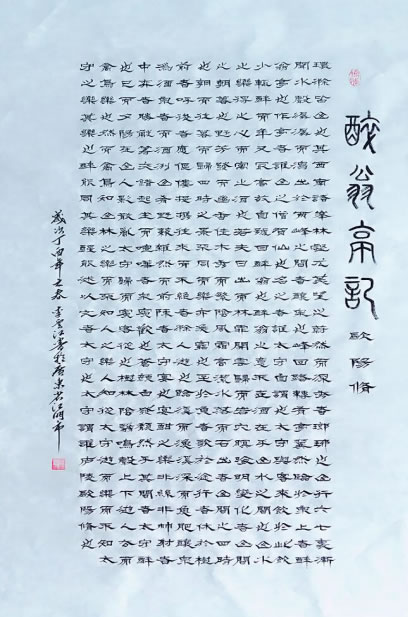 醉翁亭記 歐陽修
環滁皆山也其西南諸峰林壑尤美望之蔚然而深秀者瑯琊也山行六七里漸
聞水聲潺潺而瀉出於兩峰之間者釀泉也峰回路轉有亭翼然臨於泉上者醉
翁亭也作亭者誰山之僧智仙也名之者誰太守自謂也太守與客來飲於此飲
少輒醉而年又最高故自號曰醉翁也醉翁之意不在酒在乎山水之間也山水
之樂得之心而寓之酒也若夫日出而林霏開雲歸而巖穴暝晦明變化者山間
之朝暮也野芳發而幽香佳木秀而繁陰風霜高潔水落而石出者山間之四時
也朝而往暮而歸四時之景不同而樂亦無窮也至於負者歌於途行者休於樹
前者呼後者應傴僂提攜往來而不絕者滁人遊也臨溪而漁溪深而魚肥釀泉
為酒泉香而酒洌山肴野蔌雜然而前陳者太守宴也宴酣之樂非絲非竹射者
中弈者勝觥籌交錯起坐而喧嘩者眾賓歡也蒼顏白髮頹然乎其間者太守醉
也已而夕陽在山人影散亂太守歸而賓客從也樹林陰翳鳴聲上下遊人去而
禽鳥樂也然而禽鳥知山林之樂而不知人之樂人知從太守遊而樂而不知太
守之樂其樂也醉能同其樂醒能述以文者太守也太守謂誰廬陵歐陽修也
歲次丁酉年之春李雲江書於廣東省江門市